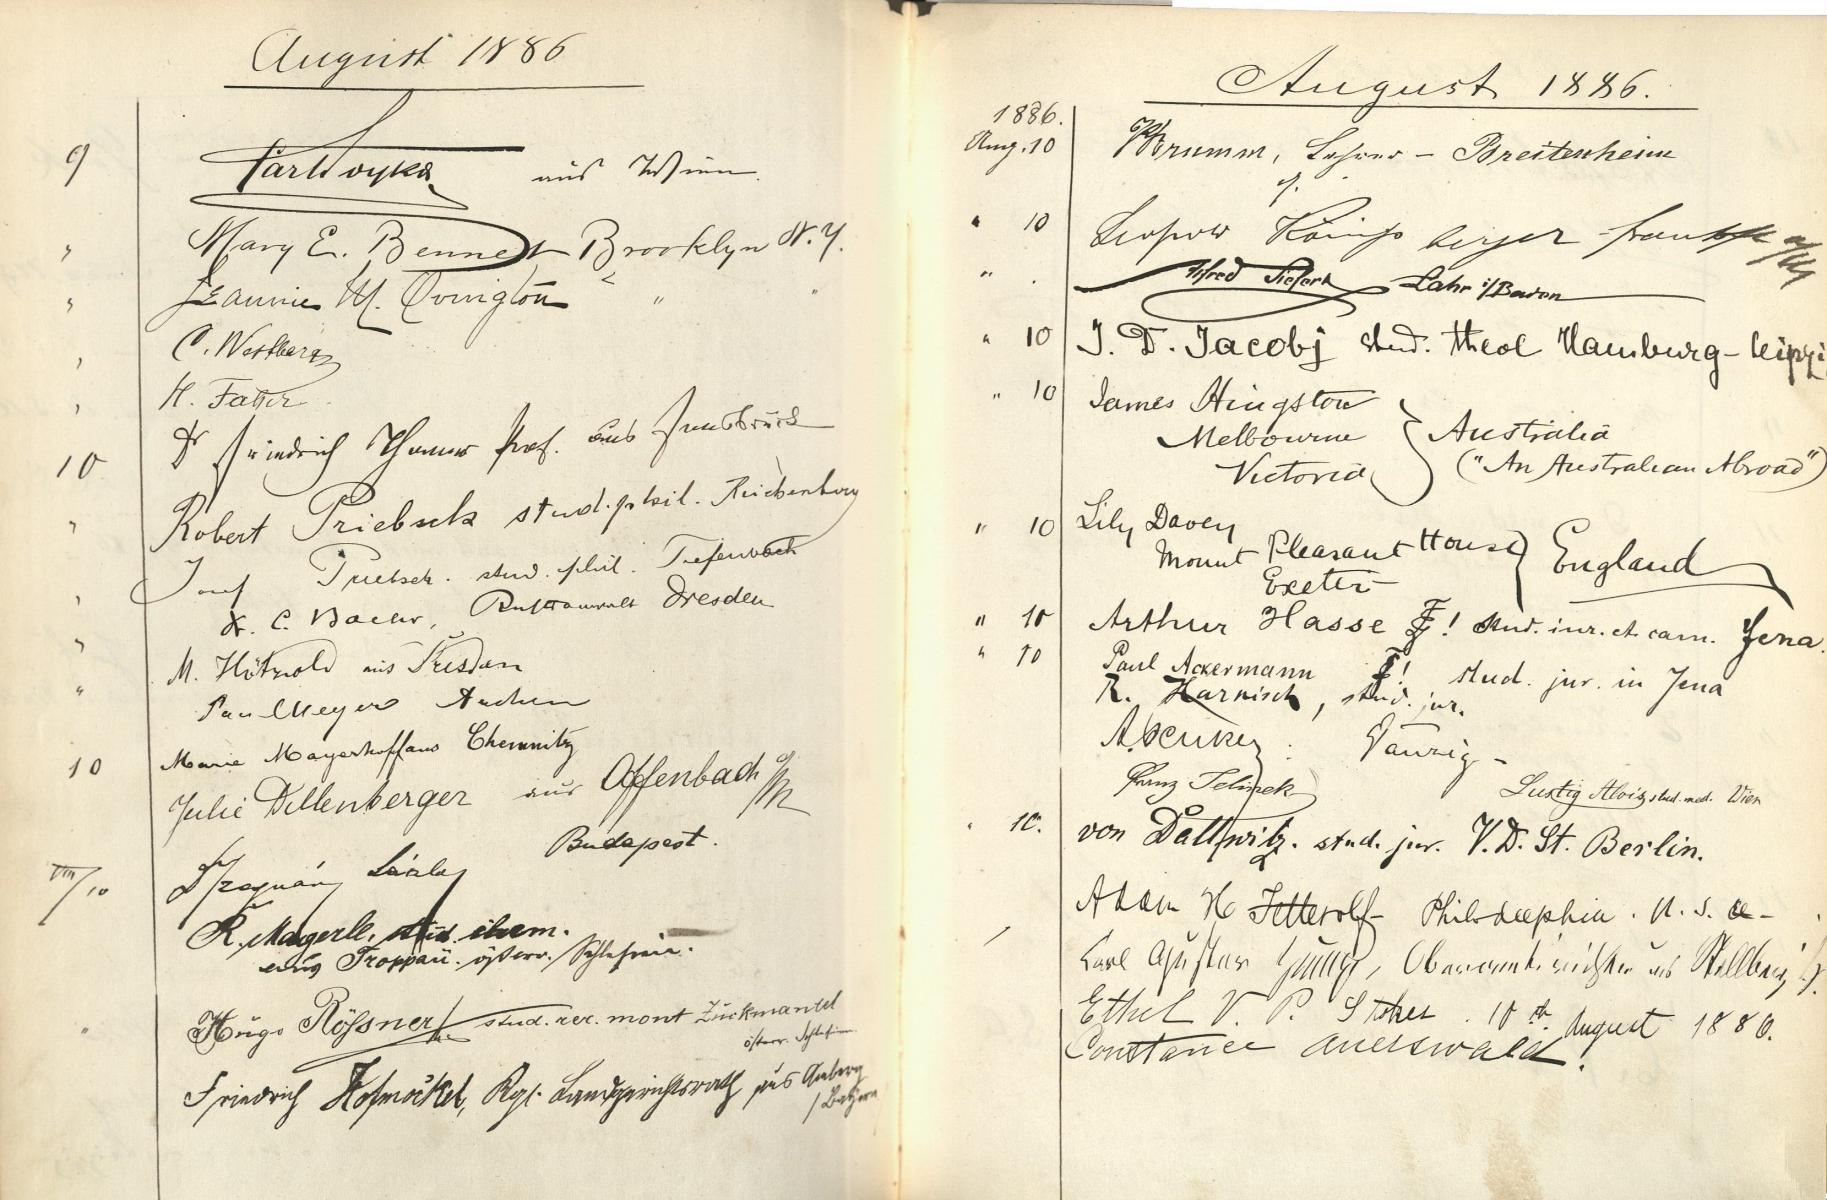 August 1886
9 Carl Woyka aus Wien.
" Mary E. Bennett Brooklyn N.Y.
" Jeannie M. Ovington " "
" C. Westberg
" H. Fatter
10 Dr Friedrich Prof. aus Innsbruck
" Robert Priebsch stud. phil. Reichenberg
Josef Priebsch. stud. phil. Tiefenbach
" Dr. C. Baehr, Rechtsanwalt Dresden
" M. Hötzold aus Dresden
" Paul Meyer Aachen
10 Marie Mayerhoff aus Chemnitz
Julie Dillenberger aus Offenbach a/M
Budapest.
VIII/10 László
R. Magerle, stud. chem.
aus Troppau. österr. Schlesien.
" Hugo Rößner stud. rer. mont Zuckmantel
österr. Schlesien
Friedrich Hofmöckel, Kgl. Landgerichtsrath aus Amberg
/Bayern
August 1886.
1886.
Aug. 10 Krumm, Lehrer - Breitenheim
" 10 Leopold Königsberger Frankft a/M
" . Alfred Siefert Lahr i/Baden
" 10 J. D. Jacobj stud. theol Hamburg - Leipzi
" 10 James Hingston
Melbourne } Australia
Victoria ("An Australian Abroad")
" 10 Lily Davey
Mount Pleasant House } England
Exeter
" 10 Arthur Hasse ! stud. iur. et cam. Jena.
" 10 Paul Ackermann ! stud. jur. in Jena
R. Harnisch, stud. jur.
A. Danzig -
Franz Jelinek Lustig Alois stud. med. Wien
" 10. von Dallwitz. stud. jur. V. D. St. Berlin.
Adam H Fetterolf - Philadelphia. U. S. a -
Carl Gustav Oberamtsrichter aus Stollberg
Ethel V. P. Stokes. 10th August 1886.
Constance Auerswald.